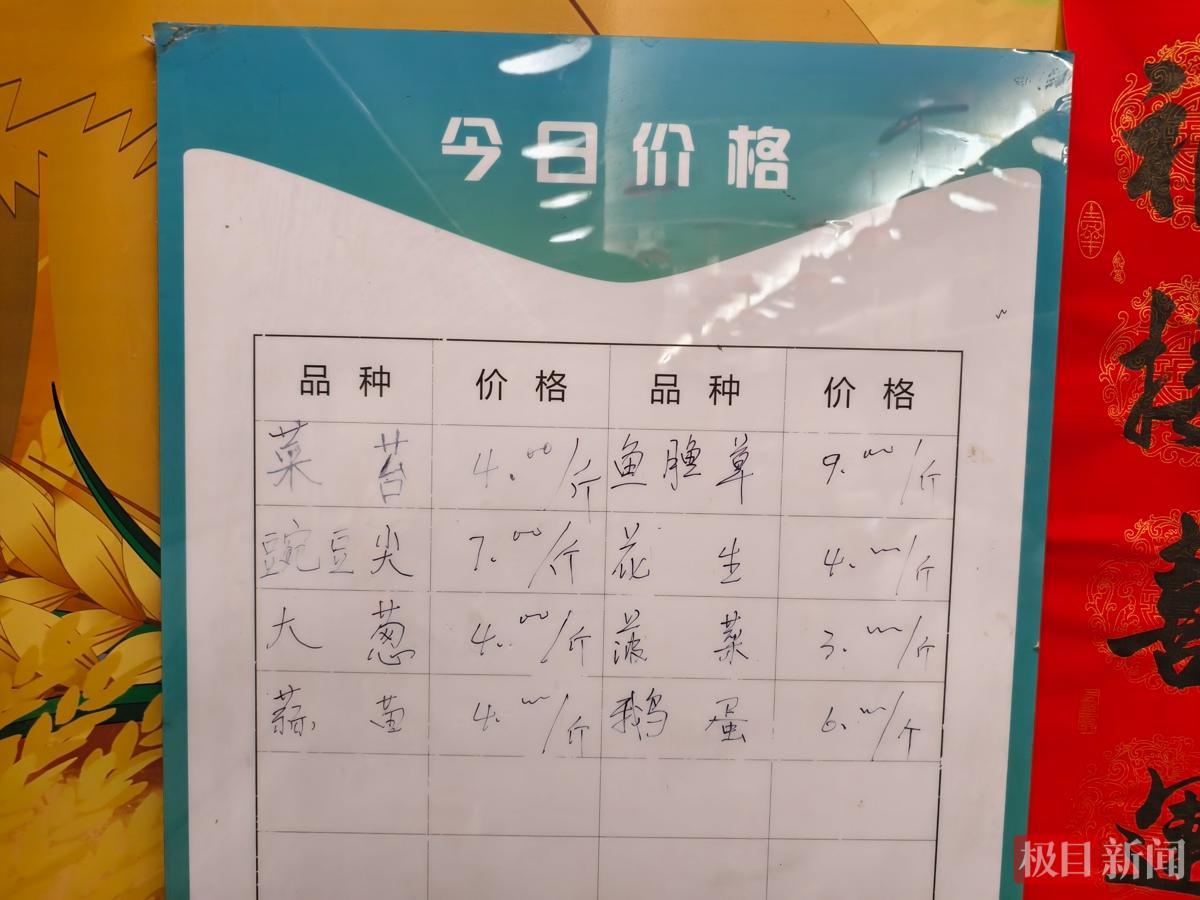 今日价格
品种 价格 品种 价格
菜苔 4.00/斤 鱼腥草 9.00/斤
豌豆尖 7.00/斤 花生 4.00/斤
大葱 4.00/斤 菠菜 3.00/斤
蒜苗 4.00/斤 鹅蛋 6.00/斤
喜
运
极目新闻